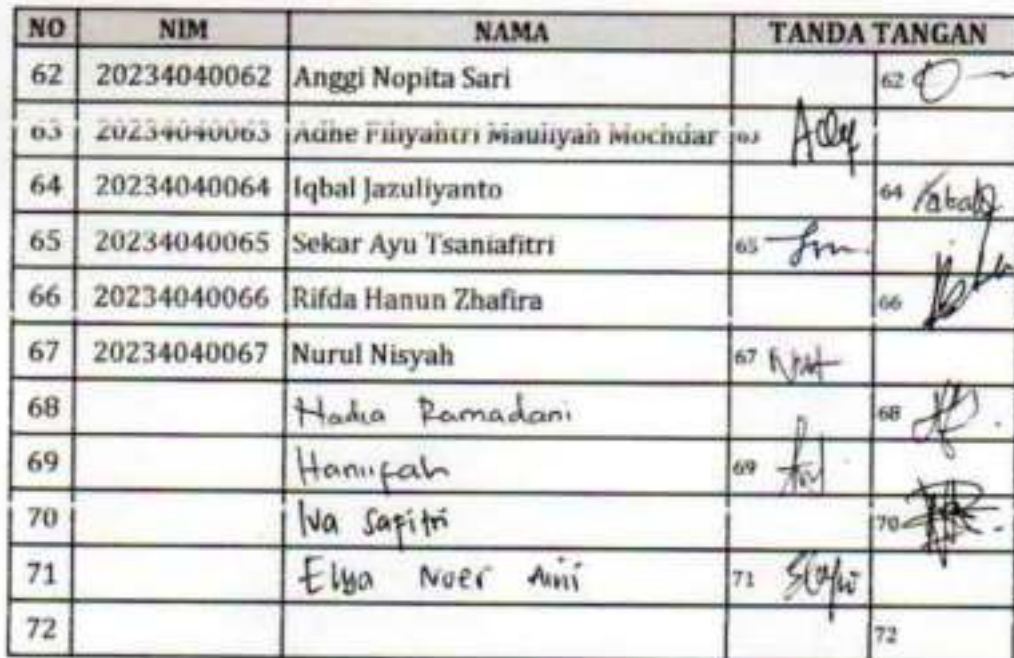 NO NIM NAMA TANDA TANGAN
62 20234040062 Anggi Nopita Sari 62
63 20234040063 Adhe Fihyahtri Mauliyah Mochdar 63
64 20234040064 Iqbal Jazuliyanto 64
65 20234040065 Sekar Ayu Tsaniafitri 65
66 20234040066 Rifda Hanun Zhafira 66
67 20234040067 Nurul Nisyah 67
68 Hadia Ramadani 68
69 Haniifah 69
70 Iva Safitri 70
71 Elya Nuer Aini 71
72 72